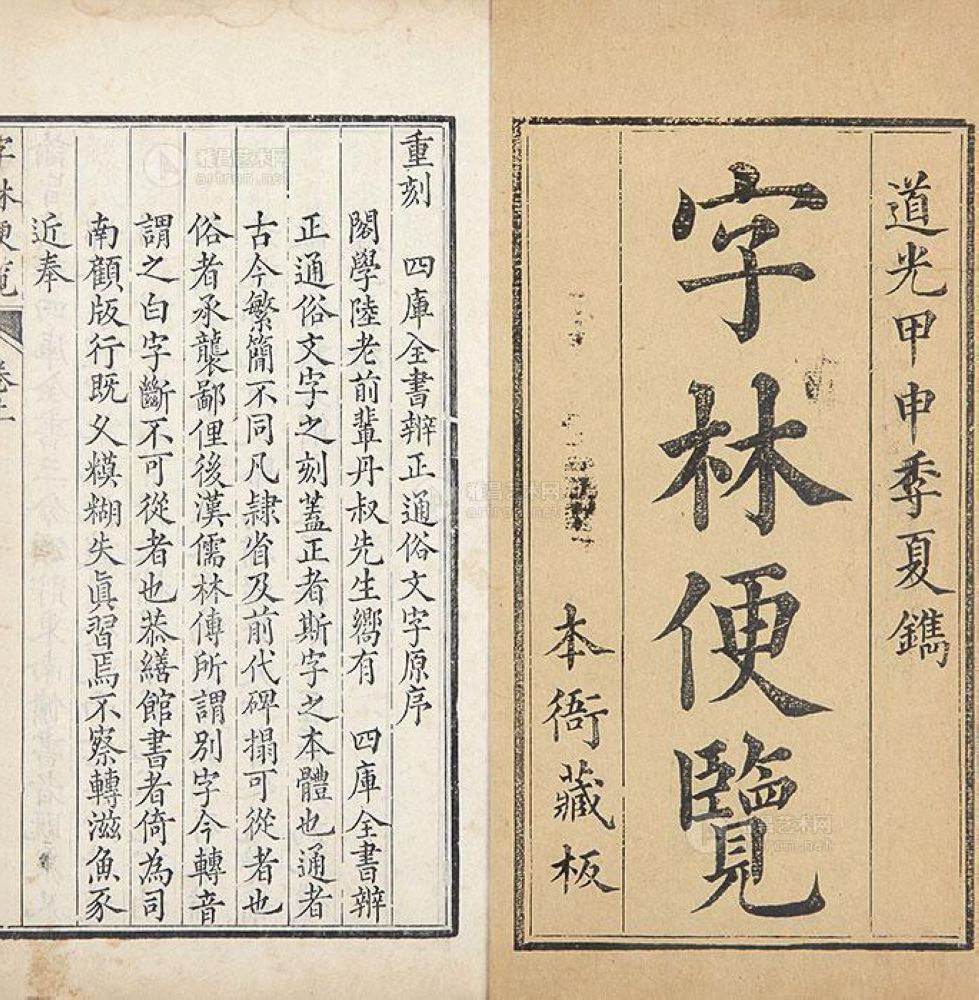 道光甲申季夏鐫
字林便覽
本衙藏板
重刻 四庫全書辧正通俗文字原序
閣學陸老前輩丹叔先生嚮有 四庫全書辧
正通俗文字之刻蓋正者斯字之本體也通者
古今繁簡不同凡隸省及前代碑搨可從者也
俗者承襲鄙俚後漢儒林傳所謂別字今轉音
謂之白字斷不可從者也恭繕館書者倚為司
南顧版行既久糢糊失眞習焉不察轉滋魚豕
近奉
字林便覧 卷上
雅昌艺术网
artron.net